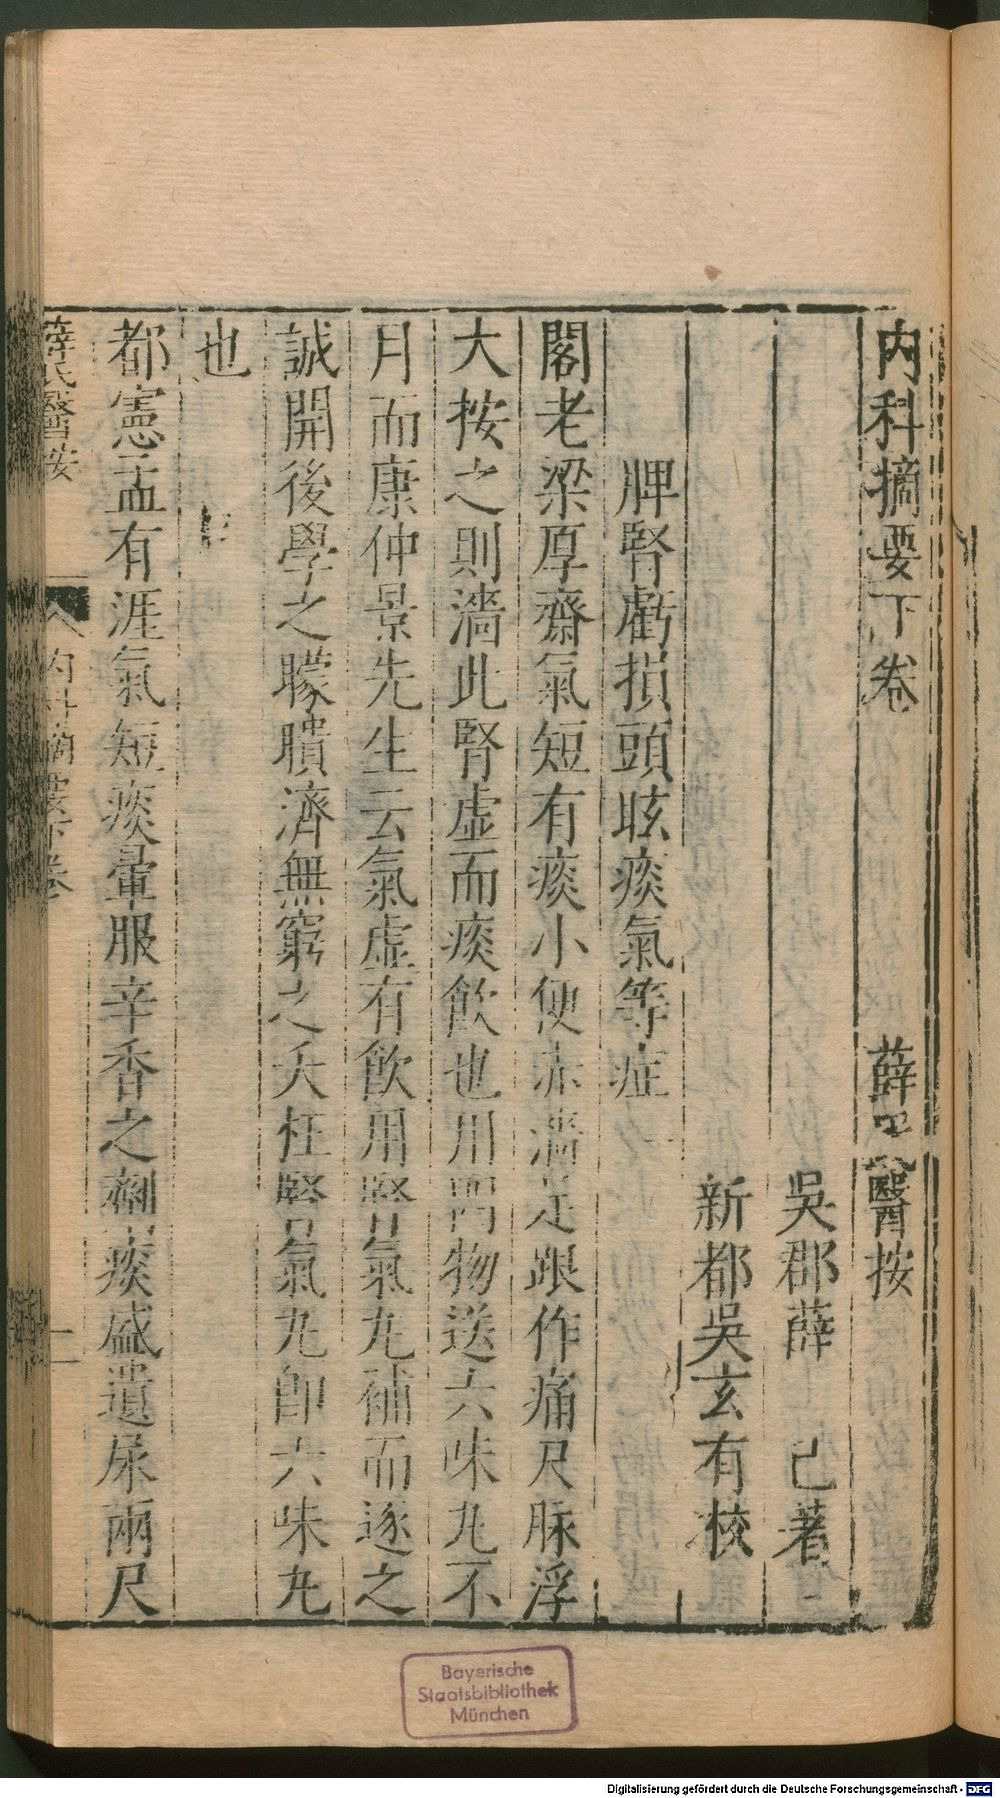 內科摘要下卷 薛氏醫按
吳郡薛 己著
新都吳玄有校
脾腎虧損頭眩痰氣等症
閣老梁厚齋氣短有痰小便赤濇足跟作痛尺脉浮
大按之則濇此腎虛而痰飲也用四物送六味丸不
月而康仲景先生云氣虛有飲用腎氣丸補而逐之
誠開後學之矇聵濟無窮之夭枉腎氣丸卽六味丸
也
都憲孟有涯氣短痰暈服辛香之劑痰盛遺尿兩尺
薛氏醫按 內科摘要下卷 一
Bayerische
Staatsbibliothek
München
Digitalisierung gefördert durch die Deutsche Forschungsgemeinschaft - DFG